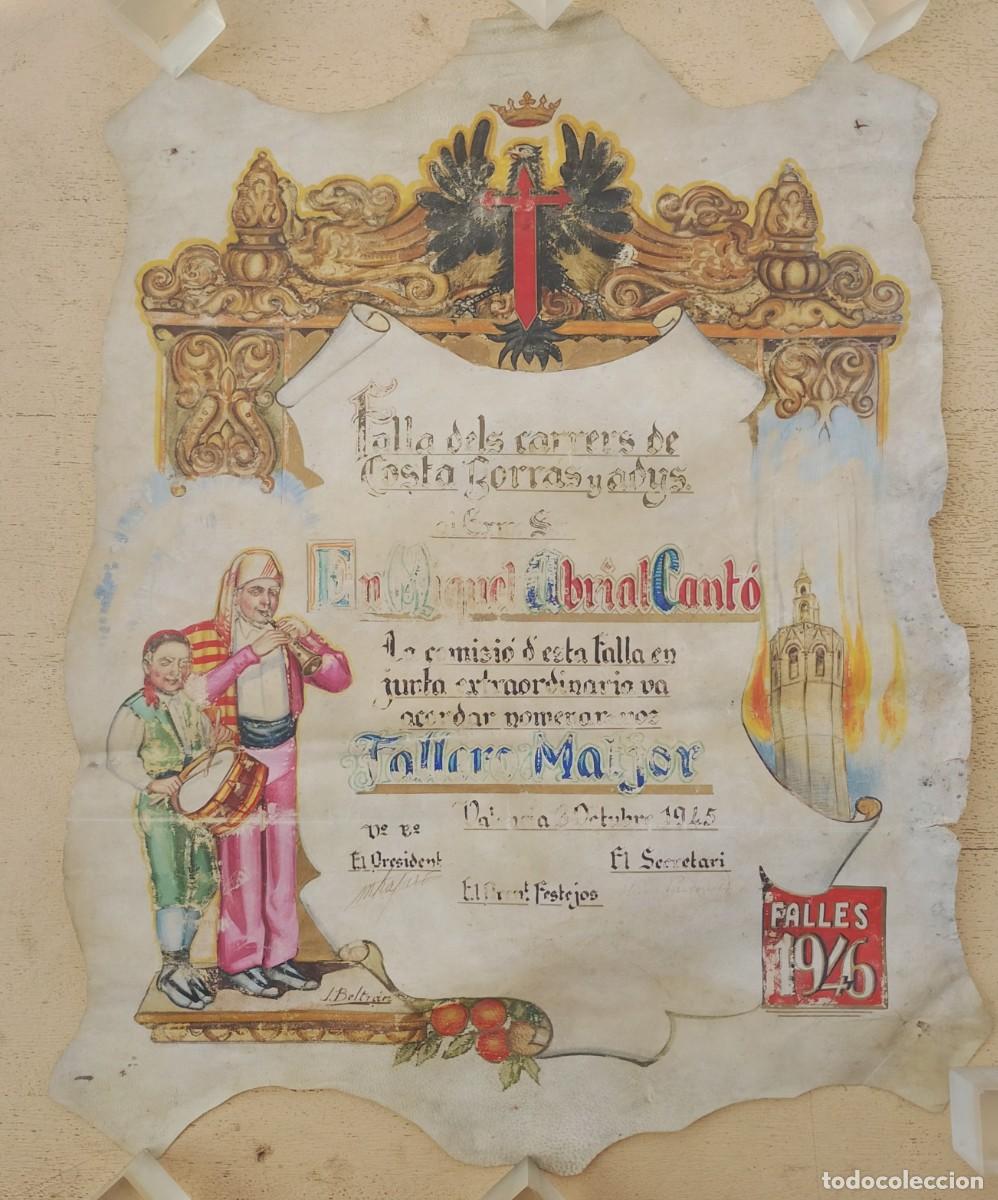 Falla dels carrers de
Costa Borras y adys.
al Exmo Sr
En Miquel Abrial Cantó
La comisió d'esta Falla en
junta extraordinaria va
acordar nomenar-voz
Fallero Matjor
Valencia 6 Octubre 1945
Vº Bº
El President
El Secretari
El Presi. Festejos
J. Beltrán
FALLES
1946
todocoleccion